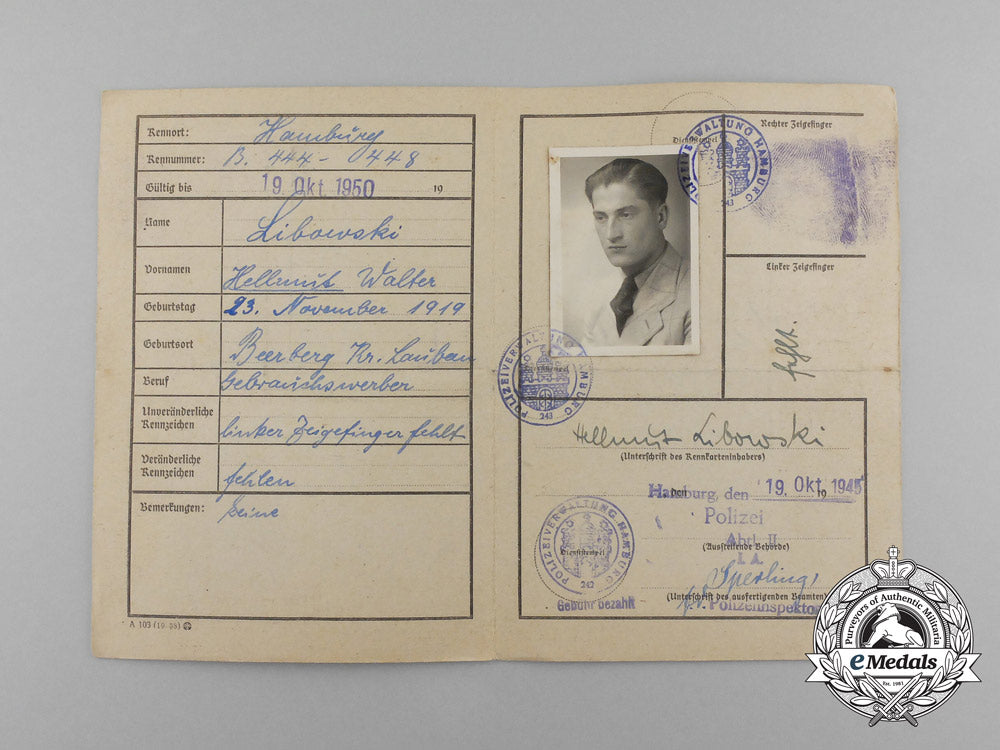 Kennort: Hamburg
Kennummer: B. 444 - 0448
Gültig bis 19. Okt. 1950 19
Name Libowski
Vornamen Hellmut Walter
Geburtstag 23. November 1919
Geburtsort Beerberg Kr. Lauban
Beruf Gebrauchswerber
Unveränderliche
Kennzeichen linker Zeigefinger fehlt
Veränderliche
Kennzeichen fehlen
Bemerkungen: keine
A 103 (10. 38)
Dienststempel
POLIZEIVERWALTUNG HAMBURG
243
Rechter Zeigefinger
Linker Zeigefinger
fehlt.
POLIZEIVERWALTUNG HAMBURG
243
Hellmut Libowski
(Unterschrift des Kennkarteninhabers)
Hamburg, den 19. Okt. 1945
Polizei
Abtl. II
(Ausfertigende Behörde)
I. A.
Sperling
(Unterschrift des ausfertigenden Beamten)
Polizeiinspektor
POLIZEIVERWALTUNG HAMBURG
Dienststempel
242
Gebühr bezahlt
Purveyors of Authentic Militaria
eMedals
Est. 1981